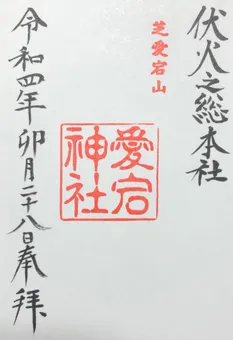 伏火之総本社
芝愛宕山
愛宕
神社
令和四年卯月二十八日奉拝